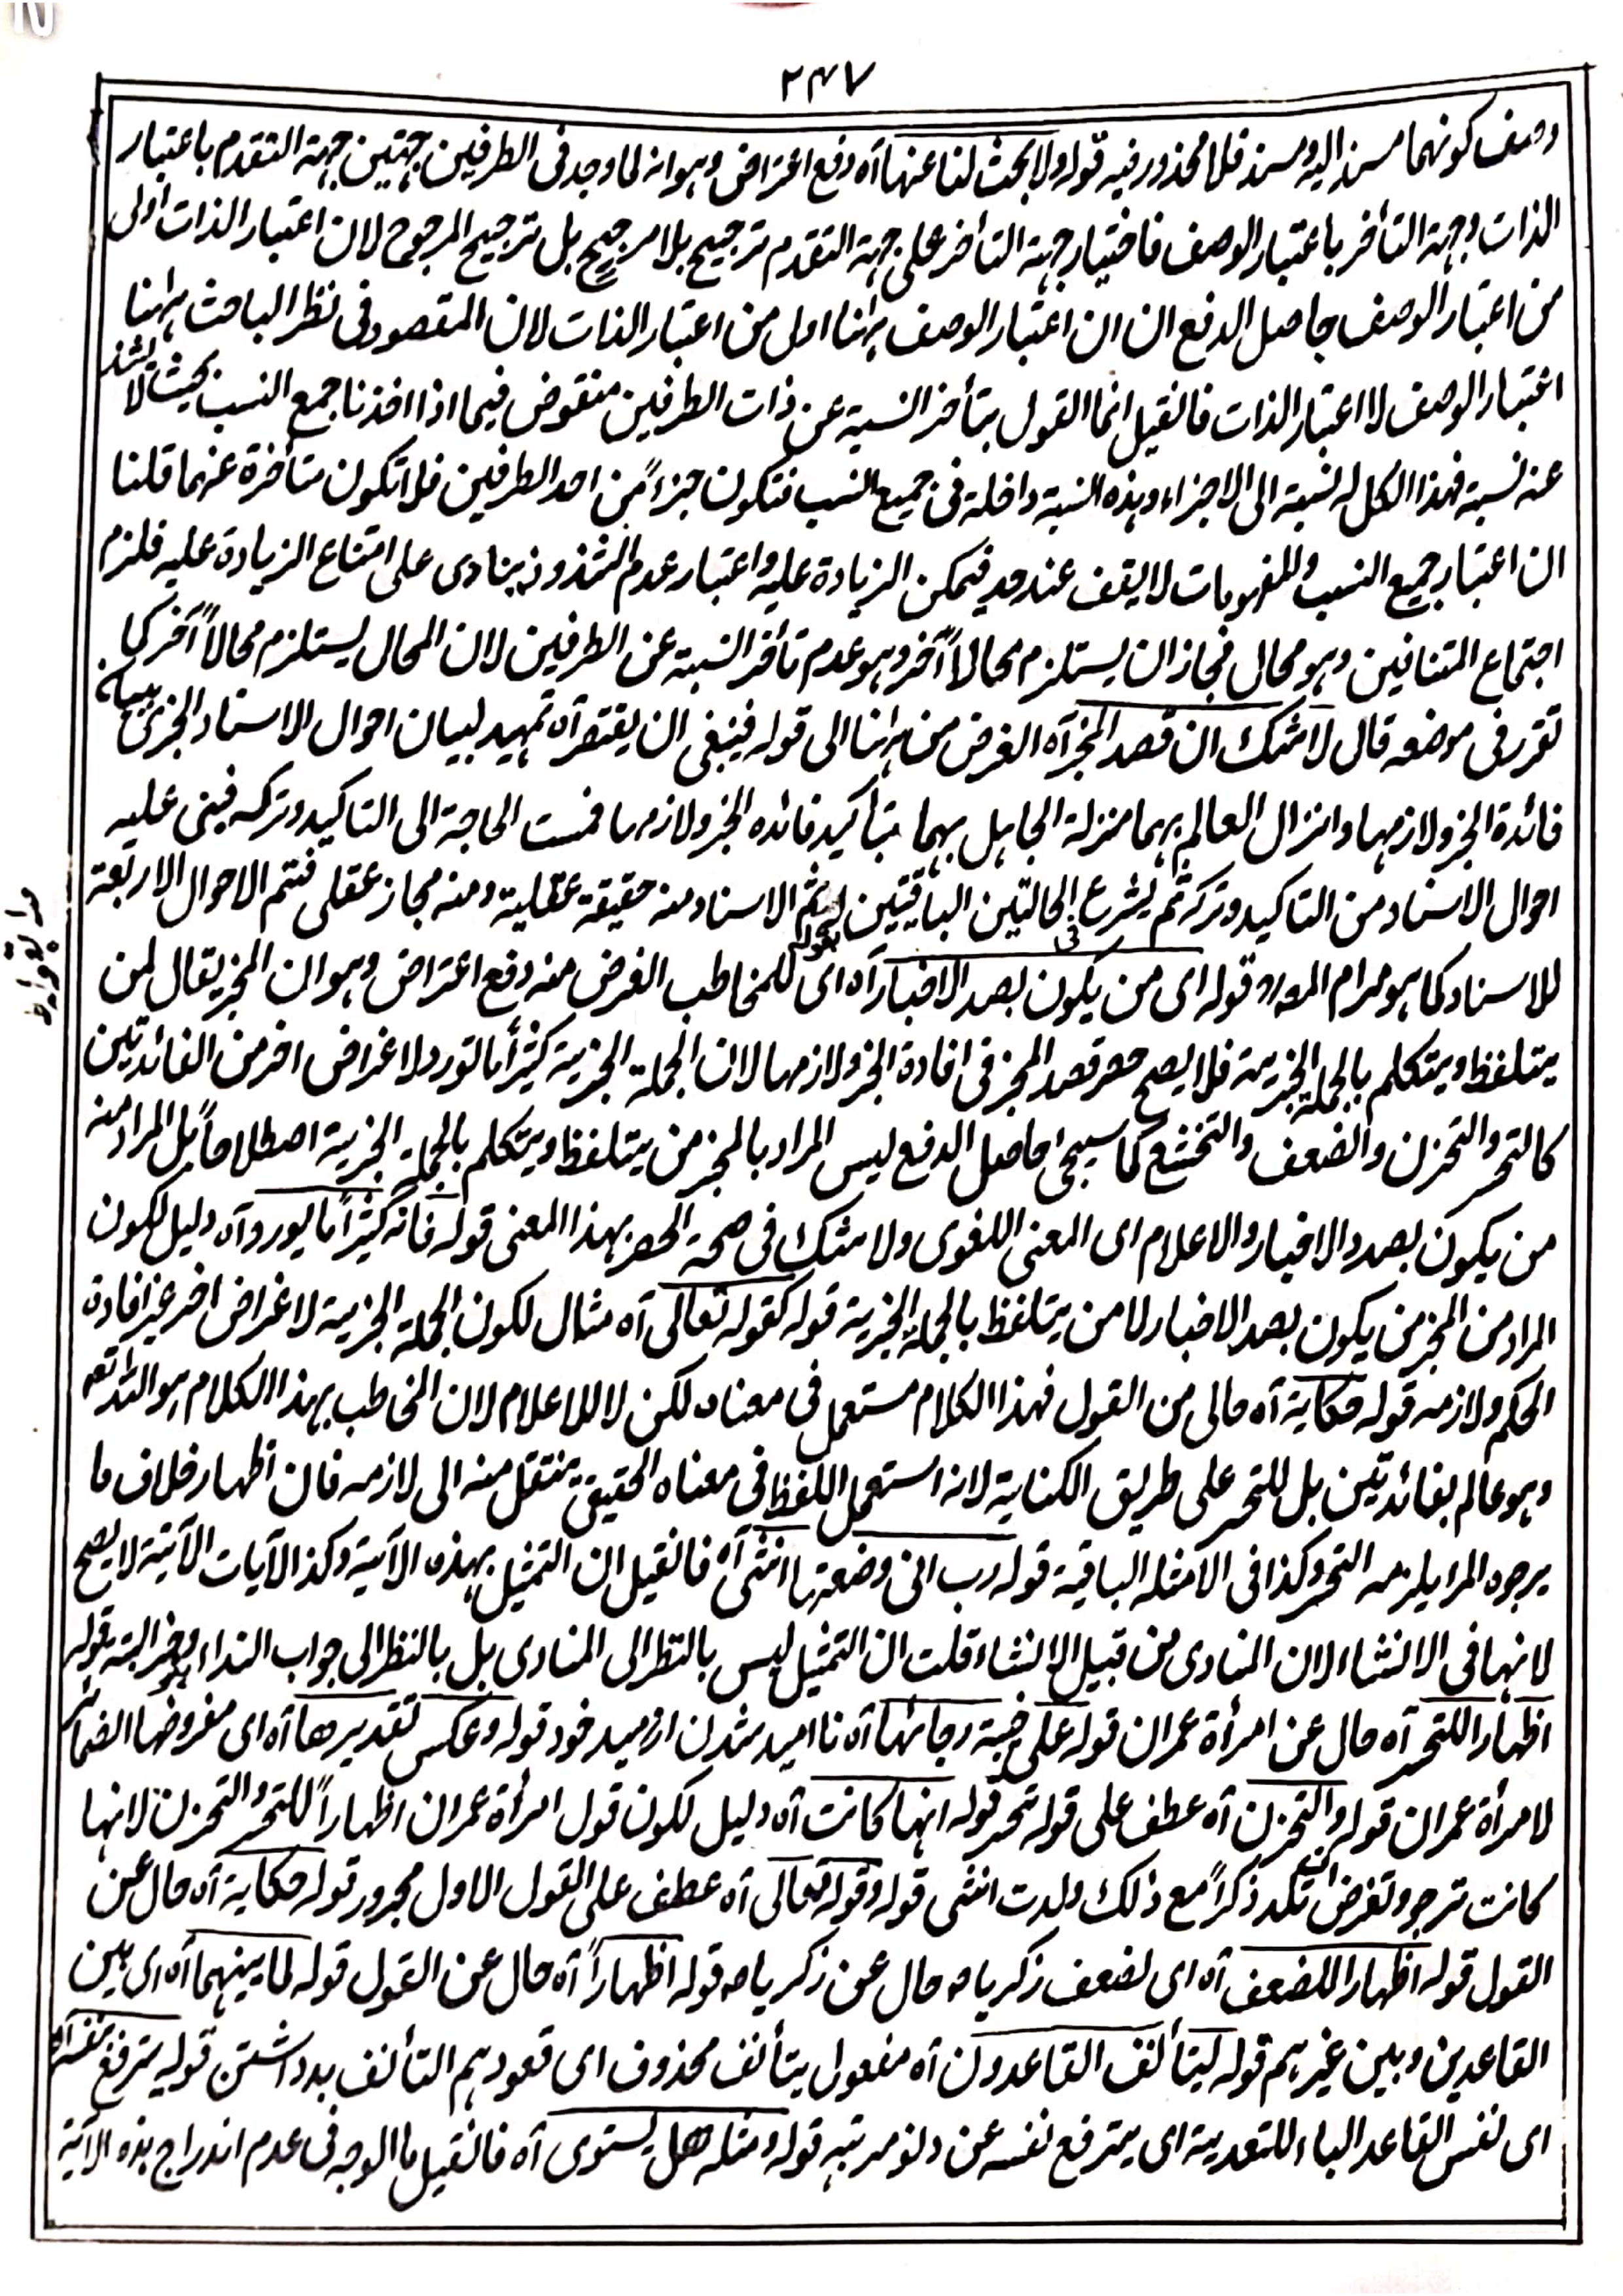 ۲۴۷
وصف كونهما مسند اليه ومسند فلا محذور فيه قوله ولا بحث لنا عنها آه دفع اعتراض وهو انه لما وجد فى الطرفين جهتين جهة التقدم باعتبار
الذات وجهة التأخر باعتبار الوصف فاختيار جهة التأخر على جهة التقدم ترجيح بلا مرجح بل ترجيح المرجوح لان اعتبار الذات اولى
من اعتبار الوصف حاصل الدفع ان ان اعتبار الوصف ههنا اولى من اعتبار الذات لان المقصود فى نظر الباحث ههنا
اعتبار الوصف لا اعتبار الذات فانقيل انما القول بتأخر النسبة عن ذات الطرفين منقوض فيما اذا اخذنا جمع النسب بحيث لا يشذ
عنه نسبة فهذا الكل له نسبة الى الاجزاء وهذه النسبة داخلة فى جميع النسب فتكون جزءً من احد الطرفين فلا تكون متأخرة عنهما قلنا
ان اعتبار جميع النسب والمفهومات لا يقف عند حد فيمكن الزيادة عليه واعتبار عدم الشذوذ ينادى على امتناع الزيادة عليه فلزم
اجتماع المتنافيين وهو محال فجاز ان يستلزم محالاً آخر وهو عدم تأخر النسبة عن الطرفين لان المحال يستلزم محالاً آخر كما
تقرر فى موضعه قال لا شك ان قصد المخبر آه الغرض من ههنا الى قوله فينبغى ان يقتصر آه تمهيد لبيان احوال الاسناد الخبرى ببيان
فائدة الخبر ولازمها وانزال العالم بهما منزلة الجاهل بهما بتأكيد فائده الخبر ولازمها فمست الحاجة الى التاكيد وتركه فبنى عليه
احوال الاسناد من التاكيد وتركه ثم يشرع فى الحالتين الباقيتين بقوله ثم الاسناد منه حقيقة عقلية ومنه مجاز عقلى فتم الاحوال الاربعة
للاسناد كما هو مرام المص قوله اى من يكون بصدد الاخبار آه اى للمخاطب الغرض منه دفع اعتراض وهو ان المخبر يقال لمن
يتلفظ ويتكلم بالجملة الخبرية فلا يصح حصر قصد المخبر فى افادة الخبر ولازمها لان الجملة الخبرية كثيراً ما تورد لاغراض اخر من الفائدتين
كالتحسر والتحزن والضعف والتخشع كما سيجئ حاصل الدفع ليس المراد بالمخبر من يتلفظ ويتكلم بالجملة الخبرية اصطلاحاً بل المراد منه
من يكون بصدد الاخبار والاعلام اى المعنى اللغوى ولا شك فى صحة الحصر بهذا المعنى قوله فانه كثيراً ما يورد آه دليل لكون
المراد من المخبر من يكون بصدد الاخبار لا من يتلفظ بالجملة الخبرية قوله كقوله تعالى آه مثال لكون الجملة الخبرية لاغراض اخر غير افادة
الحكم ولازمه قوله حكاية آه حال من القول فهذا الكلام مستعمل فى معناه لكن لا للاعلام لان المخاطب بهذا الكلام هو الله تعه
وهو عالم بفائدتين بل للتحسر على طريق الكناية لانه استعمل اللفظ فى معناه الحقيقى ينتقل منه الى لازمه فان اظهار خلاف ما
يرجوه المرا يلزمه التحسر وكذا فى الامثله الباقية قوله رب انى وضعتها انثى آه فانقيل ان التمثيل بهذه الآية وكذا الآيات الآتية لا يصح
لانها فى الانشاء لان المنادى من قبيل الانشاء قلت ان التمثيل ليس بالنظر الى المنادى بل بالنظر الى جواب النداء وهو خبر البتة قوله
اظهارا للتحسر آه حال عن امرأة عمران قوله على خيبة رجائها آه نا اميد شدن از اميد خود قوله وعكس تقديرها آه اى مفروضها الضمائر
لامرأة عمران قوله والتحزن آه عطف على قوله تحسر قوله انها كانت آه دليل لكون قول امرأة عمران اظهاراً للتحسر والتحزن لانها
كانت ترجو وتفرض ان تلد ذكراً مع ذلك ولدت انثى قوله وقوله تعالى آه عطف على القول الاول مجرور قوله حكاية آه حال عن
القول قوله اظهارا للضعف آه اى لضعف زكريا ص حال عن زكريا ص قوله اظهاراً آه حال عن القول قوله لما بينهما آه اى بين
القاعدين وبين غيرهم قوله ليتأنف القاعدون آه مفعول يتأنف محذوف اى قعودهم التأنف بد داشتن قوله يترفع بنفسه آه
اى نفس القاعد الباء للتعدية اى يترفع نفسه عن دنو مرتبته قوله ومثله هل يستوى آه فانقيل ما الوجه فى عدم اندراج هذه الآية